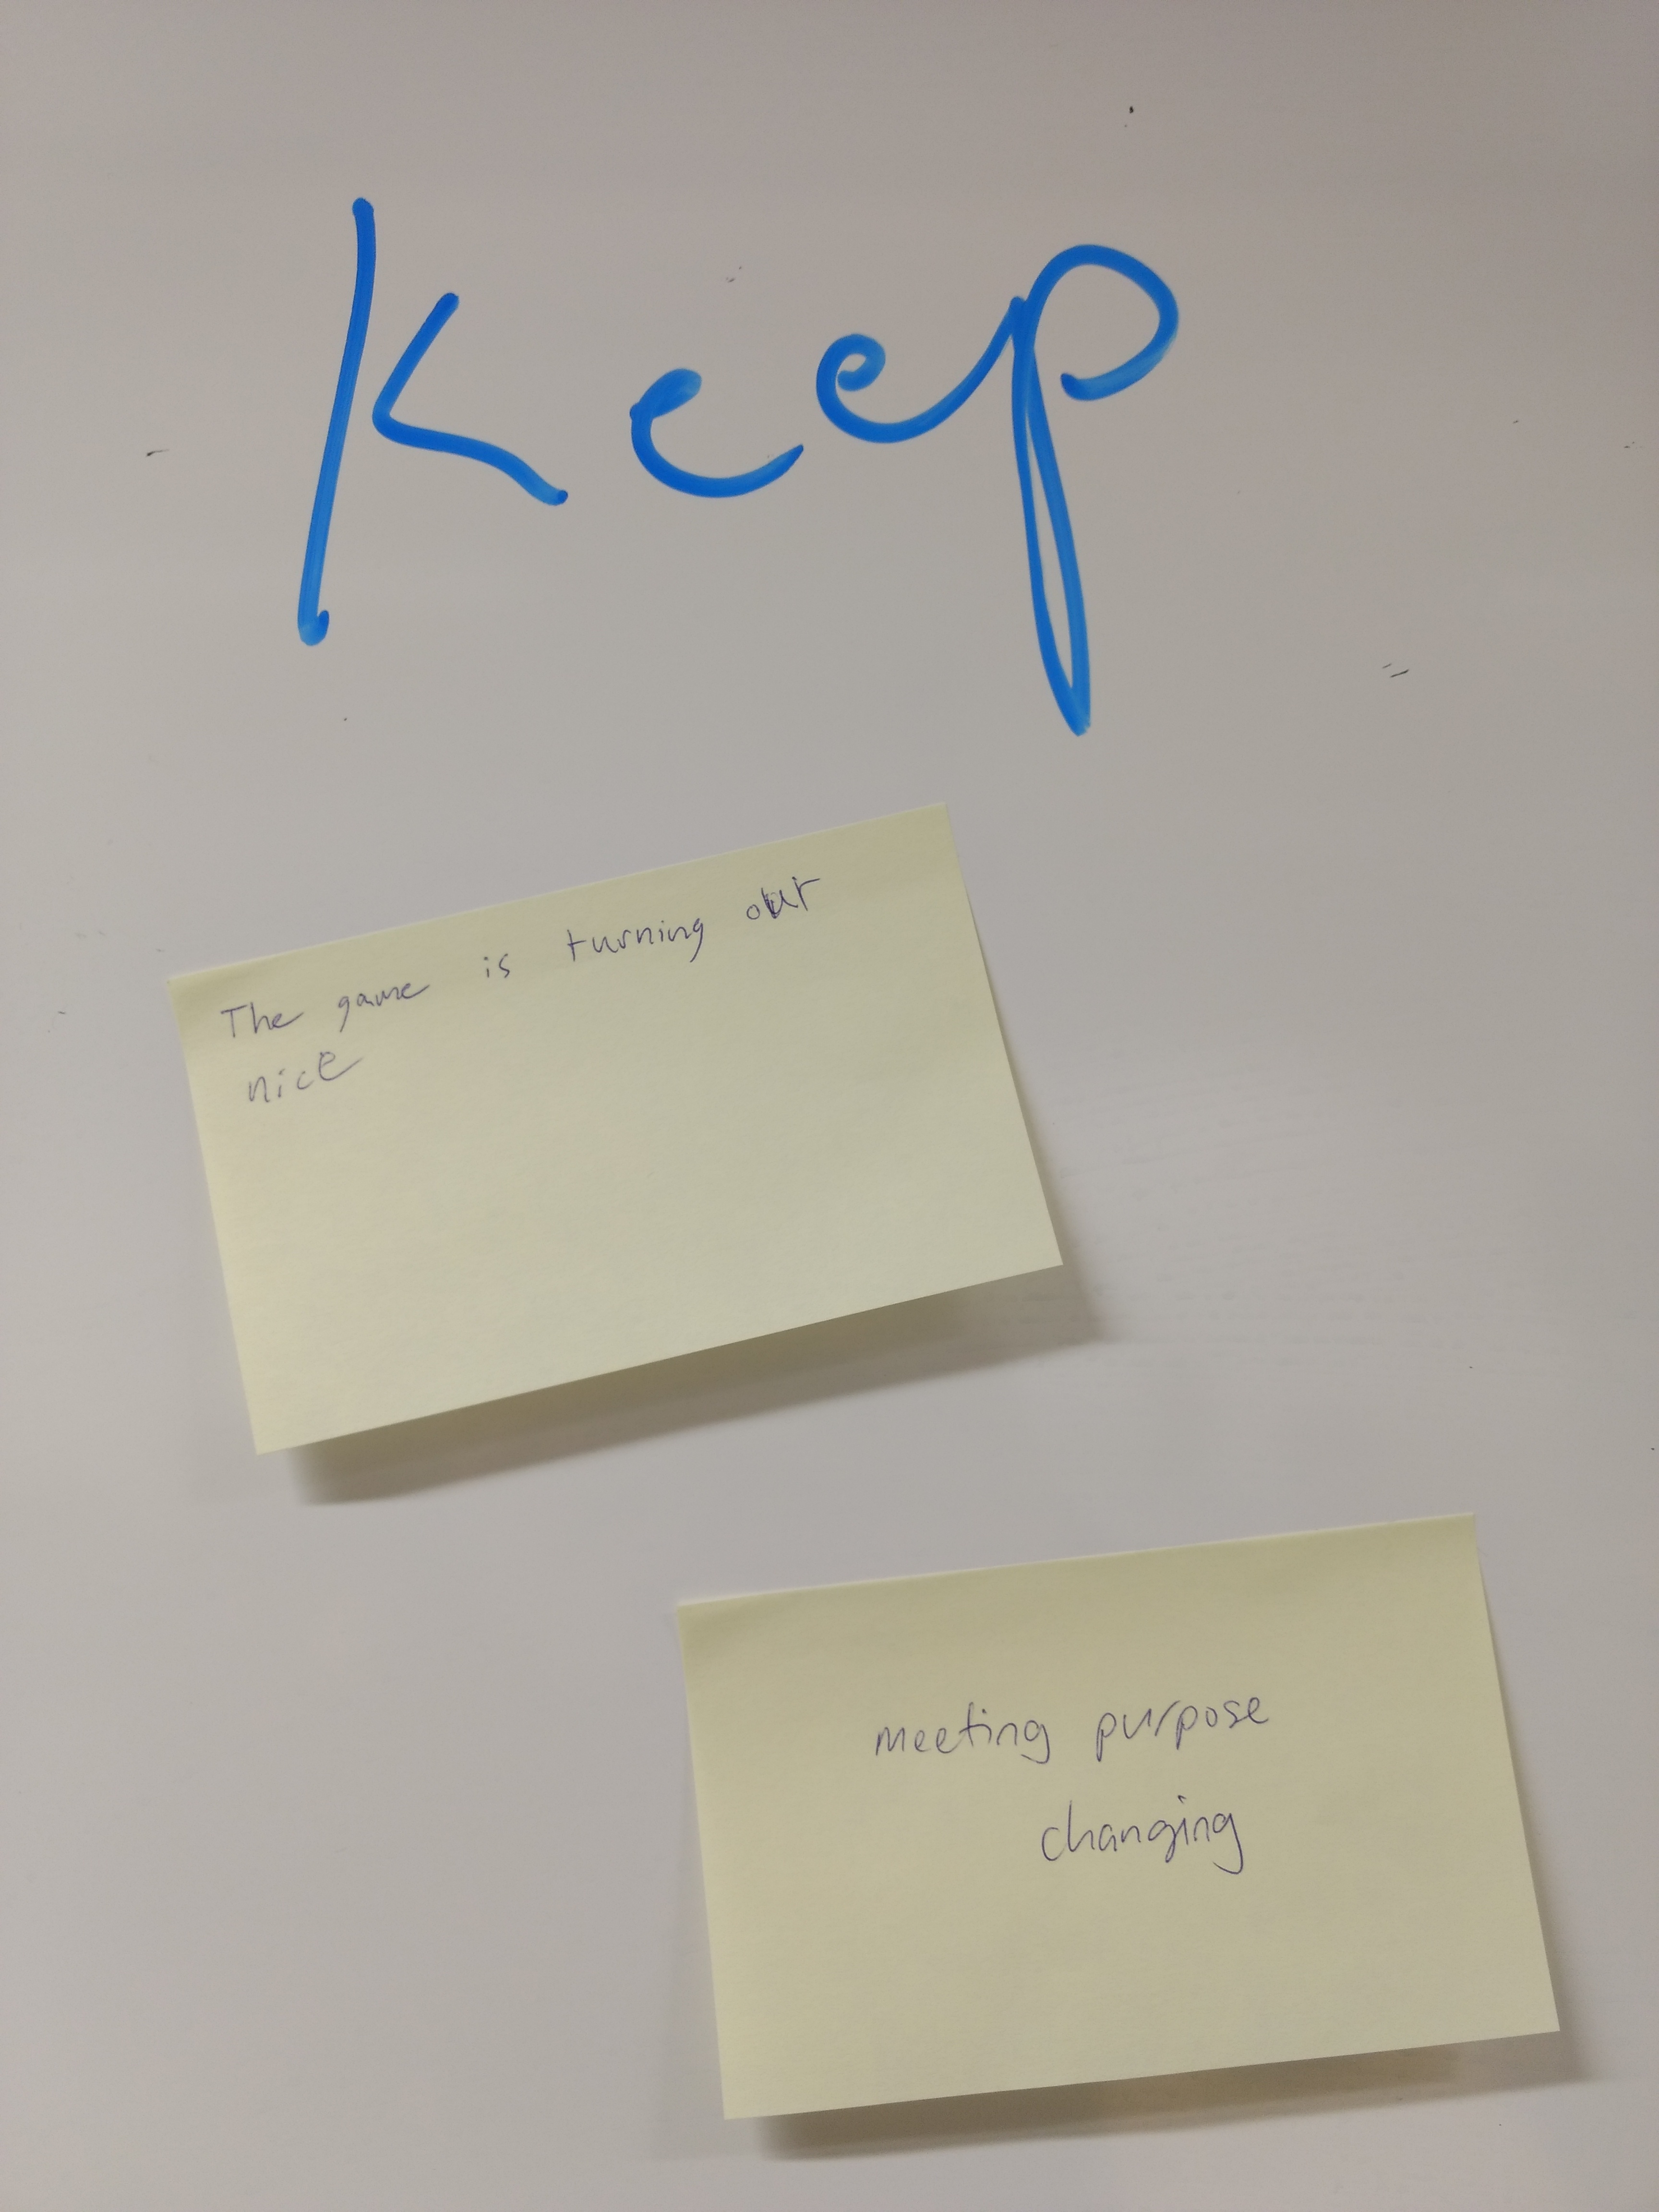 Keep
The game is turning out
nice
meeting purpose
changing